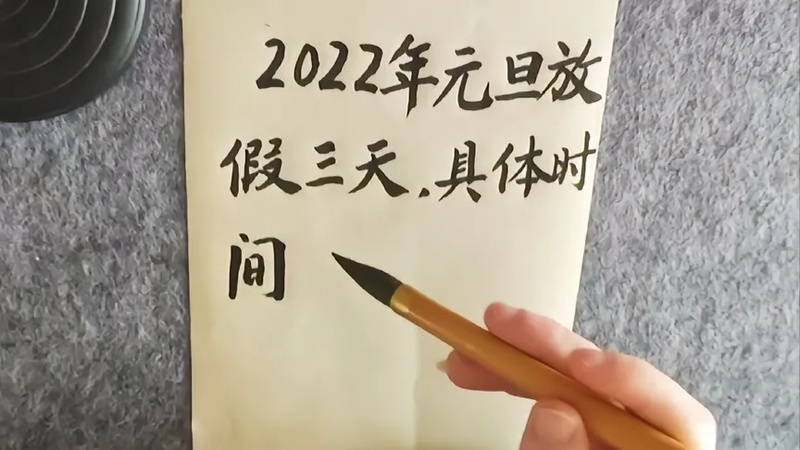 2022年元旦放
假三天,具体时
间